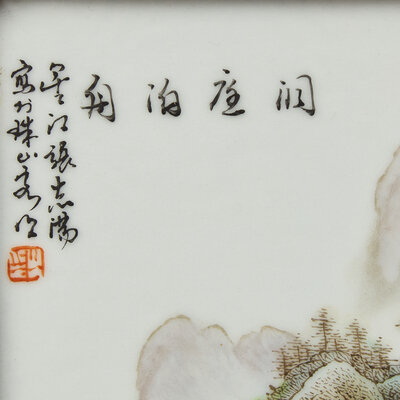 洞庭泊舟
墨江張志湯
寫於珠山客次